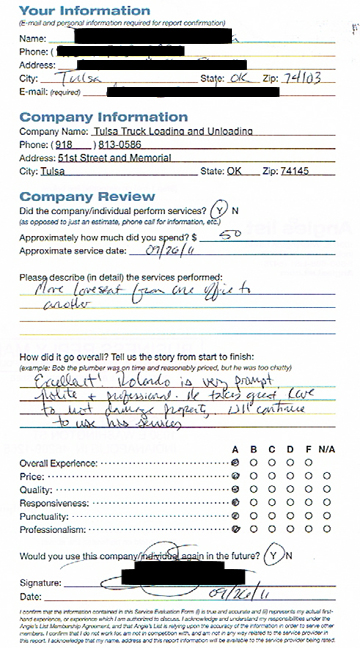 Your Information
(E-mail and personal information required for report confirmation)
Name:
Phone: (
Address:
City: Tulsa State: OK Zip: 74103
E-mail: (required)
Company Information
Company Name: Tulsa Truck Loading and Unloading
Phone: ( 918 ) 813-0586
Address: 51st Street and Memorial
City: Tulsa State: OK Zip: 74145
Company Review
Did the company/individual perform services? Y N
(as opposed to just an estimate, phone call for information, etc.)
Approximately how much did you spend? $ 50
Approximate service date: 09/26/11
Please describe (in detail) the services performed:
Move loveseat from one office to
another
How did it go overall? Tell us the story from start to finish:
(example: Bob the plumber was on time and reasonably priced, but he was too chatty)
Excellent! Rolando is very prompt
polite + professional. He takes great care
to not damage property. Will continue
to use his services
A B C D F N/A
Overall Experience:
Price:
Quality:
Responsiveness:
Punctuality:
Professionalism:
Would you use this company/individual again in the future? Y N
Signature:
Date: 09/26/11
I confirm that the information contained in this Service Evaluation Form (i) is true and accurate and (ii) represents my actual first-
hand experience, or experience which I am authorized to discuss. I acknowledge and understand my responsibilities under the
Angie's List Membership Agreement, and that Angie's List is relying upon the accuracy of the information in order to serve other
members. I confirm that I do not work for, am not in competition with, and am not in any way related to the service provider in
this report. I acknowledge that my name, address and this report information will be available to the service provider being rated.